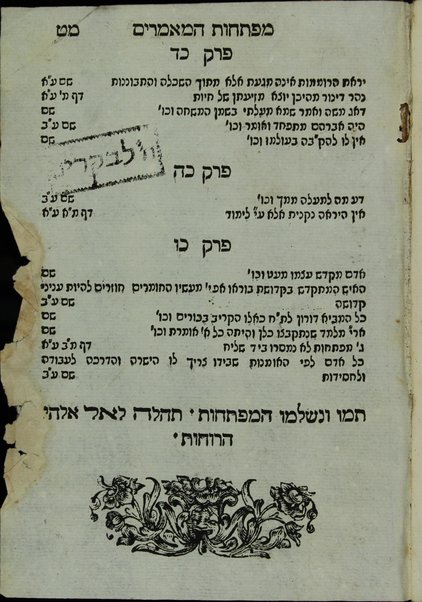 מפתחות המאמרים מט
פרק כד
יראת הרוממות אינה מגעת אלא מתוך השכלה והתבוננות שם ע"א
נהר דינור מהיכן יוצא מזיעתן של חיות דף מ' ע"א
דאג משה ואמר שמא מעלתי בשמן המשחה וכו' שם
היה אברהם מתפחד ואומר וכו' שם ע"ב
אין לו להק"בה בעולמו וכו' שם
פרק כה
דע מה למעלה ממך וכו' שם ע"ב
אין היראה נקנית אלא ע"י לימוד דף מ"א ע"א
פרק כו
אדם מקדש עצמו מעט וכו' שם
האיש המתקדש בקדושת בוראו אפי' מעשיו החומרים חוזרים להיות עניני שם
קדושה שם ע"ב
כל המביא דורון לת"ח כאלו הקריב בכורים וכו' שם
ארי"  מלמד שנתקבצו כלן והיתה כל א' אומרת וכו' שם
ג' מפתחות לא נמסרו ביד שליח דף מ"ב ע"א
כל אדם לפי האומנות שבידו צריך לו הישרה והדרכה לעבודה
ולחסידות שם ע"ב
תמו ונשלמו המפתחות' תהלה לאל אלהי
הרוחות'